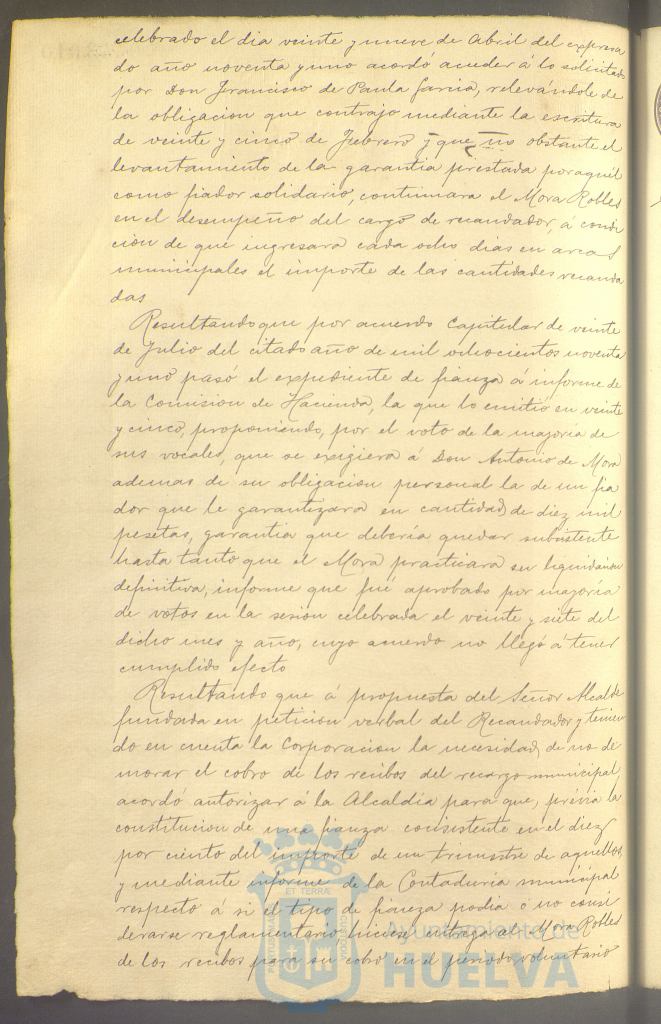 celebrado el dia veinte y nueve de Abril del expresa
do año noventa y uno acordó acceder á lo solicitado
por Don Francisco de Paula Garcia, relevándole de
la obligacion que contrajo mediante la escritura
de veinte y cinco de Febrero y que no obstante el
levantamiento de la garantia prestada por aquel
como fiador solidario, continuara el Mora Robles
en el desempeño del cargo de recaudador, á condi
cion de que ingresara cada ocho dias en arcas
municipales el importe de las cantidades recauda
das
Resultando que por acuerdo Capitular de veinte
de Julio del citado año de mil ochocientos noventa
y uno pasó el expediente de fianza á informe de
la Comision de Hacienda, la que lo emitió en veinte
y cinco, proponiendo, por el voto de la mayoría de
sus vocales, que se exigiera á Don Antonio de Mora
ademas de su obligacion personal la de un fia
dor que le garantizara en cantidad de diez mil
pesetas, garantia que debería quedar subsistente
hasta tanto que el Mora practicara su liquidacion
definitiva, informe que fué aprobado por mayoría
de votos en la sesion celebrada el veinte y siete del
dicho mes y año, cuyo acuerdo no llegó á tener
cumplido efecto
Resultando que á propuesta del Señor Alcalde
fundada en peticion verbal del Recaudador y tenien
do en cuenta la Corporacion la necesidad de no de
morar el cobro de los recibos del recargo municipal,
acordó autorizar á la Alcaldía para que, prévia la
constitucion de una fianza consistente en el diez
por ciento del importe de un trimestre de aquellos,
y mediante informe de la Contaduría municipal
respecto á si el tipo de fianza podia ó no consi
derarse reglamentario hiciese entrega al Mora Robles
de los recibos para su cobro en el periodo voluntario
ET TERRÆ
Ayuntamiento de
HUELVA